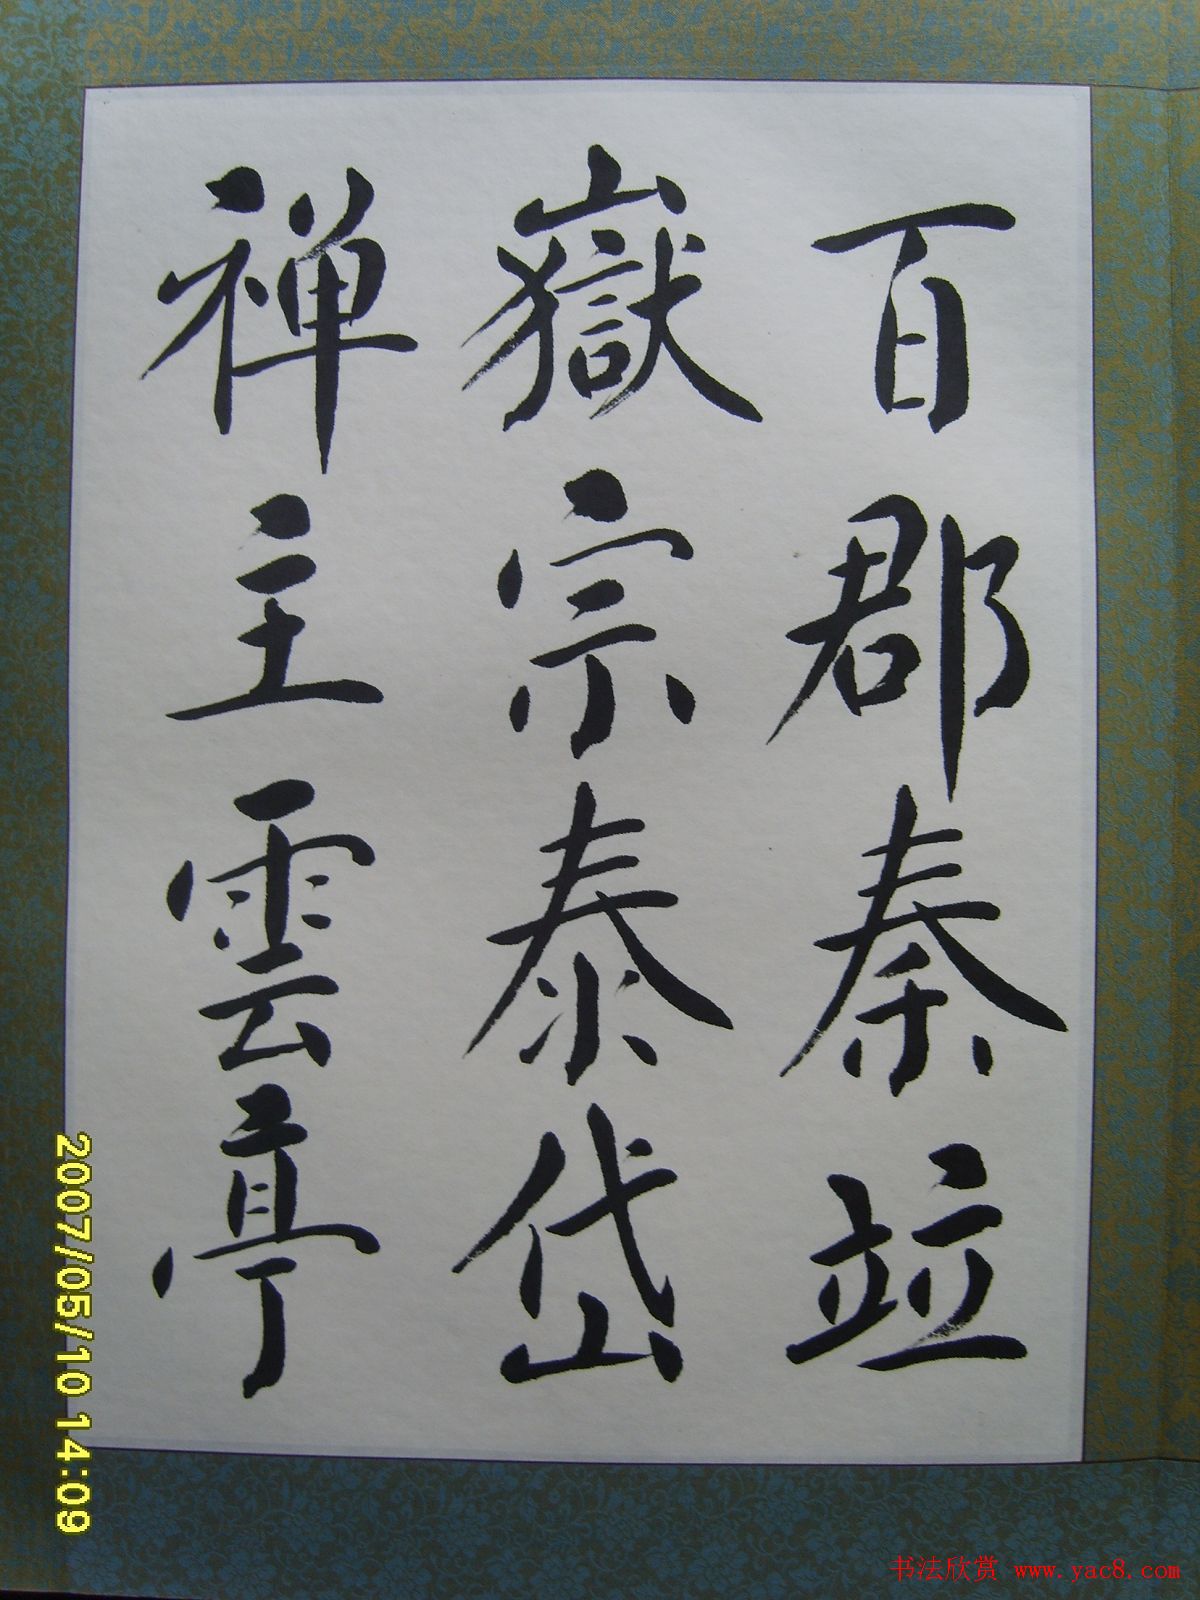 百郡秦竝
嶽宗泰岱
禅主雲亭
2007/05/10 14:09
书法欣赏 www.yac8.com